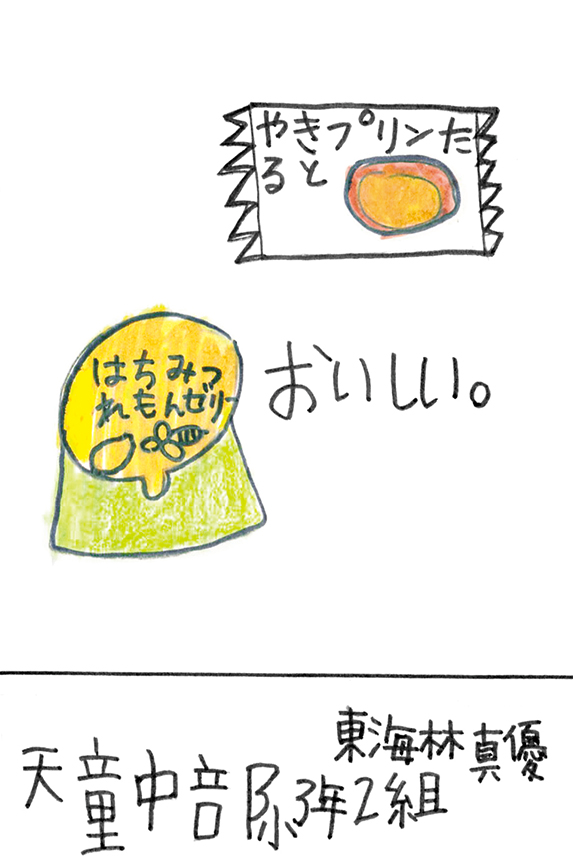 やきプリンた
ると
はちみつ
れもんゼリー
おいしい。
東海林真優
天童中部小3年2組